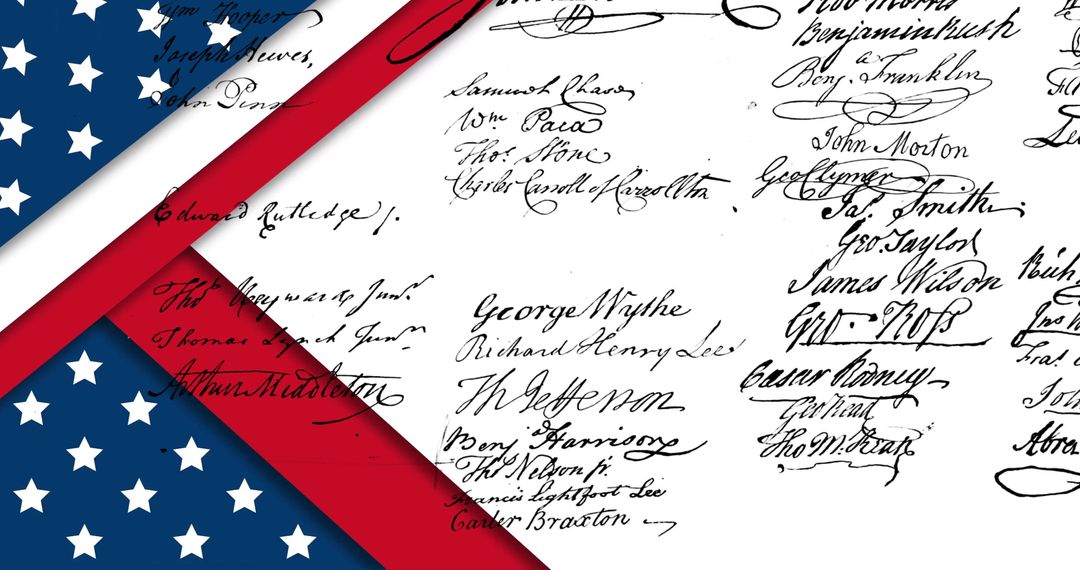 Wm Hooper
Joseph Hewes,
John Penn
Edward Rutledge /.
Thos Heyward Junr.
Thomas Lynch Junr.
Arthur Middleton
Samuel Chase
Wm Paca
Thos. Stone
Charles Carroll of Carrollton
George Wythe
Richard Henry Lee
Th Jefferson
Benj Harrison
Thos Nelson jr.
Francis Lightfoot Lee
Carter Braxton
Robt Morris
Benjamin Rush
Benj. Franklin
John Morton
Geo Clymer
Jas. Smith.
Geo. Taylor
James Wilson
Geo. Ross
Caesar Rodney
Geo Read
Tho M:Kean